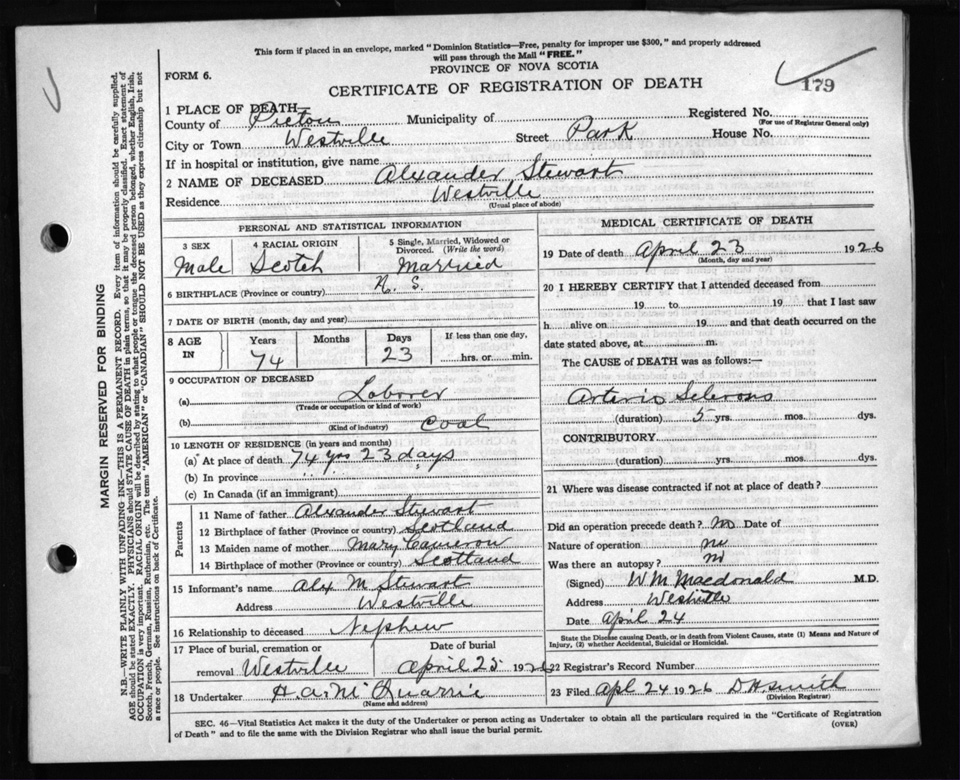 This form if placed in an envelope, marked "Dominion Statistics—Free, penalty for improper use $300," and properly addressed
will pass through the Mail "FREE."
PROVINCE OF NOVA SCOTIA
FORM 6.
CERTIFICATE OF REGISTRATION OF DEATH
179
1 PLACE OF DEATH—
County of Pictou Municipality of Registered No.
(For use of Registrar General only)
City or Town Westville Street Park House No.
If in hospital or institution, give name
2 NAME OF DECEASED Alexander Stewart
Residence Westville
(Usual place of abode)
PERSONAL AND STATISTICAL INFORMATION
3 SEX 4 RACIAL ORIGIN 5 Single, Married, Widowed or
Divorced. (Write the word)
Male Scotch Married
6 BIRTHPLACE (Province or country) N. S.
7 DATE OF BIRTH (month, day and year)
8 AGE IN Years Months Days If less than one day,
74 23 hrs. or min.
9 OCCUPATION OF DECEASED
(a) Laborer
(Trade or occupation or kind of work)
(b) Coal
(Kind of industry)
10 LENGTH OF RESIDENCE (in years and months)
(a) At place of death 74 yrs 23 days
(b) In province
(c) In Canada (if an immigrant)
Parents
11 Name of father Alexander Stewart
12 Birthplace of father (Province or country) Scotland
13 Maiden name of mother Mary Cameron
14 Birthplace of mother (Province or country) Scotland
15 Informant's name Alex M Stewart
Address Westville
16 Relationship to deceased Nephew
17 Place of burial, cremation or Date of burial
removal Westville April 25 1926
18 Undertaker H. A. McQuarrie
(Name and address)
MEDICAL CERTIFICATE OF DEATH
19 Date of death April 23 1926
(Month, day and year)
20 I HEREBY CERTIFY that I attended deceased from
19 to 19 that I last saw
h alive on 19 and that death occurred on the
date stated above, at m.
The CAUSE of DEATH was as follows:—
Arterio Sclerosis
(duration) 5 yrs. mos. dys.
CONTRIBUTORY
(duration) yrs. mos. dys.
21 Where was disease contracted if not at place of death?
Did an operation precede death? no Date of
Nature of operation no
Was there an autopsy? no
(Signed) W M Macdonald M.D.
Address Westville
Date April 24
State the Disease causing Death, or in death from Violent Causes, state (1) Means and Nature of
Injury, (2) whether Accidental, Suicidal or Homicidal.
22 Registrar's Record Number
23 Filed Apl 24 1926 D H Smith
(Division Registrar)
SEC. 46—Vital Statistics Act makes it the duty of the Undertaker or person acting as Undertaker to obtain all the particulars required in the "Certificate of Registration
of Death" and to file the same with the Division Registrar who shall issue the burial permit.
(OVER)
MARGIN RESERVED FOR BINDING
N.B.—WRITE PLAINLY WITH UNFADING INK—THIS IS A PERMANENT RECORD. Every item of information should be carefully supplied.
AGE should be stated EXACTLY. PHYSICIANS should STATE CAUSE OF DEATH in plain terms, so that it may be properly classified. Exact statement of
OCCUPATION is very important. RACIAL ORIGIN will be described by stating to what people or tongue the deceased person belonged, whether English, Irish,
Scotch, French, German, Russian, Ruthenian, etc. The terms "AMERICAN" or "CANADIAN" SHOULD NOT BE USED as they express citizenship but not
a race or people. See instructions on back of Certificate.